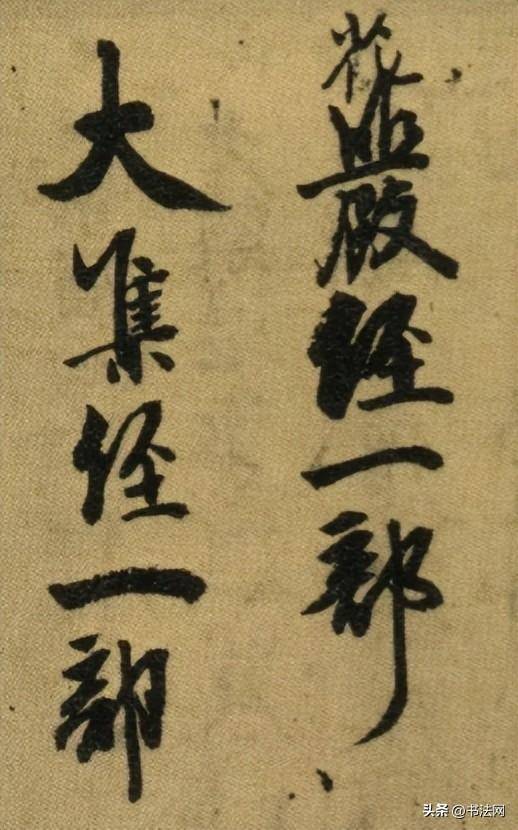 花嚴經一部
大集經一部
头条 @书法网